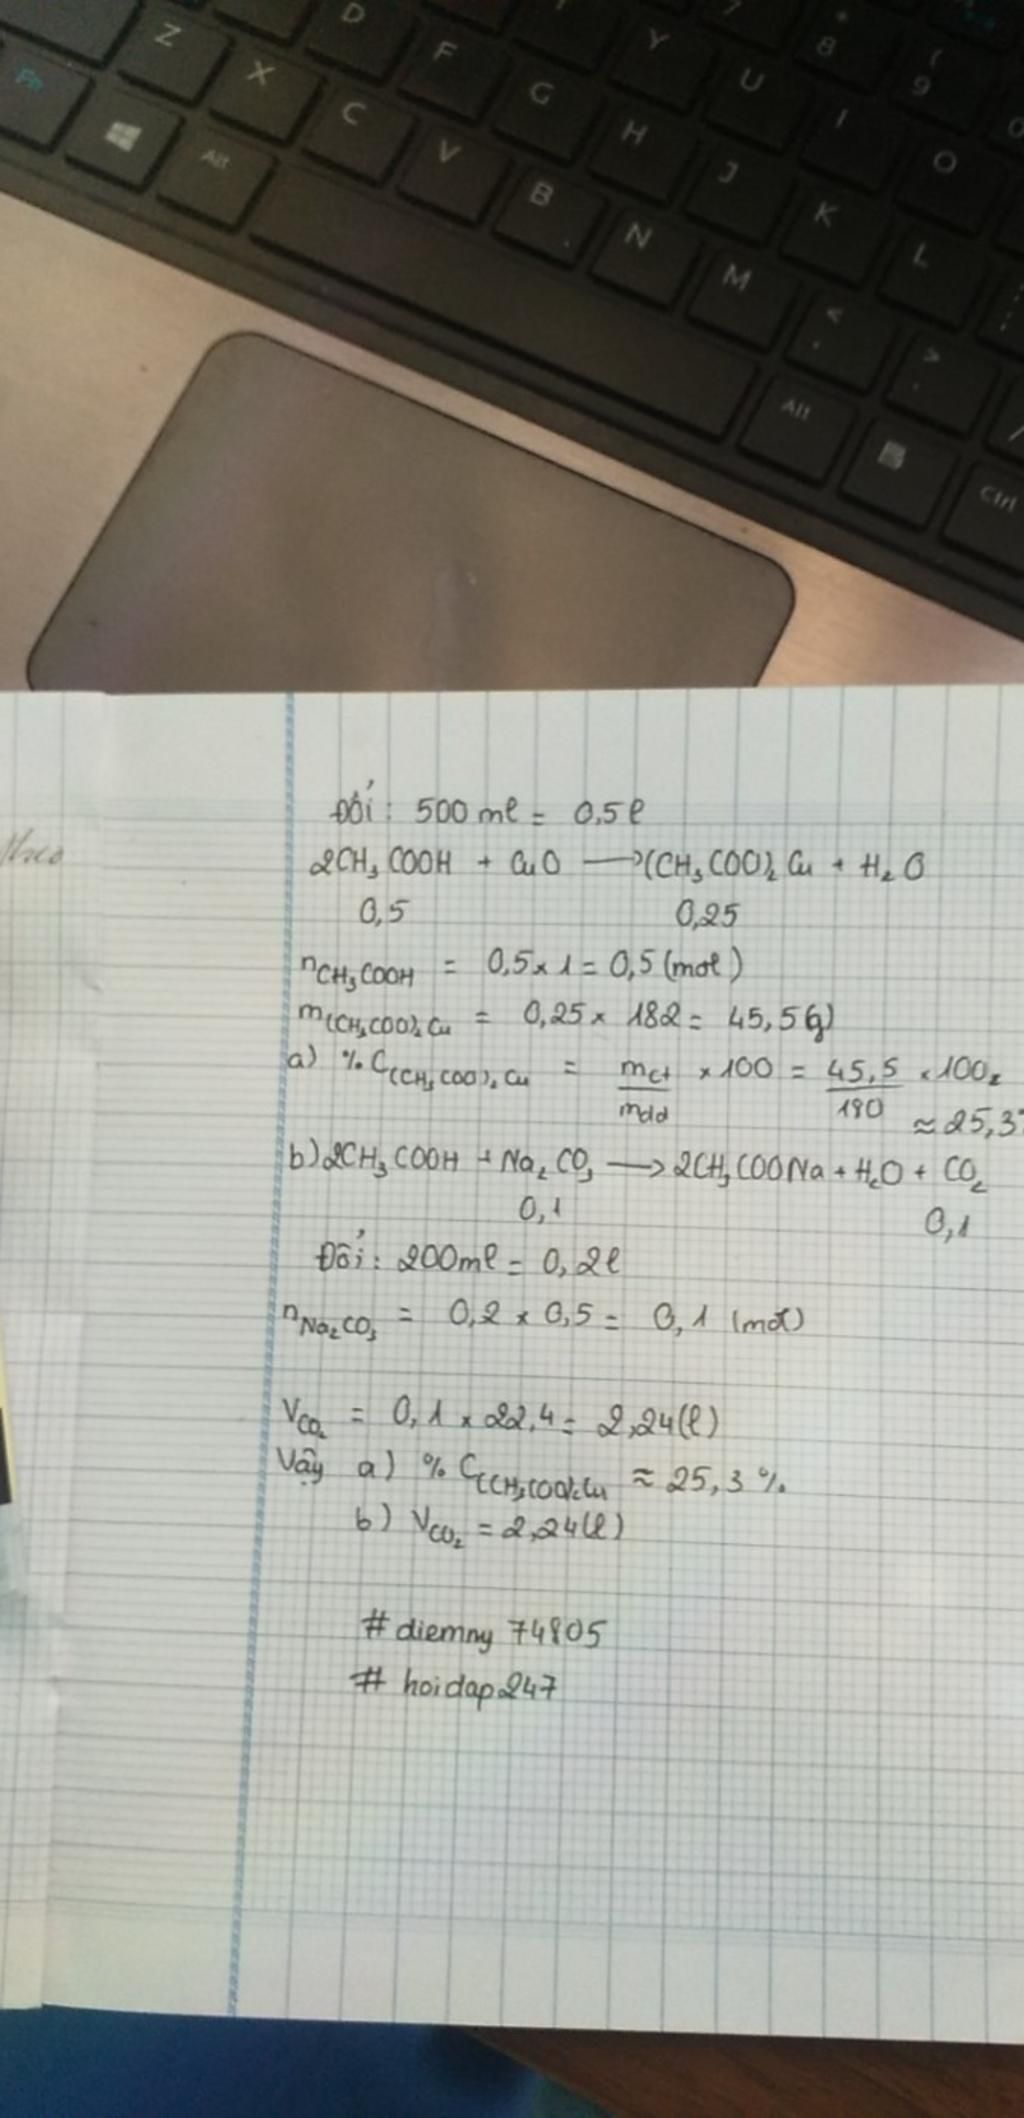 D
Z
F
Y
7
* 8
( 9
Fn
X
G
U
I
O
C
H
Alt
V
J
K
B
L
N
M
<
>
Alt
Ctrl
Đổi : 500 ml = 0,5 l
2CH₃COOH + CuO ⟶ (CH₃COO)₂Cu + H₂O
0,5 0,25
nCH₃COOH = 0,5 × 1 = 0,5 (mol)
m(CH₃COO)₂Cu = 0,25 × 182 = 45,5(g)
a) % C(CH₃COO)₂Cu = mct/mdd × 100 = 45,5/180 × 100 =
≈ 25,3%
b) 2CH₃COOH + Na₂CO₃ ⟶ 2CH₃COONa + H₂O + CO₂
0,1 0,1
Đổi : 200ml = 0,2l
nNa₂CO₃ = 0,2 × 0,5 = 0,1 (mol)
VCO₂ = 0,1 × 22,4 = 2,24(l)
Vậy a) % C(CH₃COO)₂Cu ≈ 25,3 %
b) VCO₂ = 2,24(l)
# diemny 74805
# hoidap247